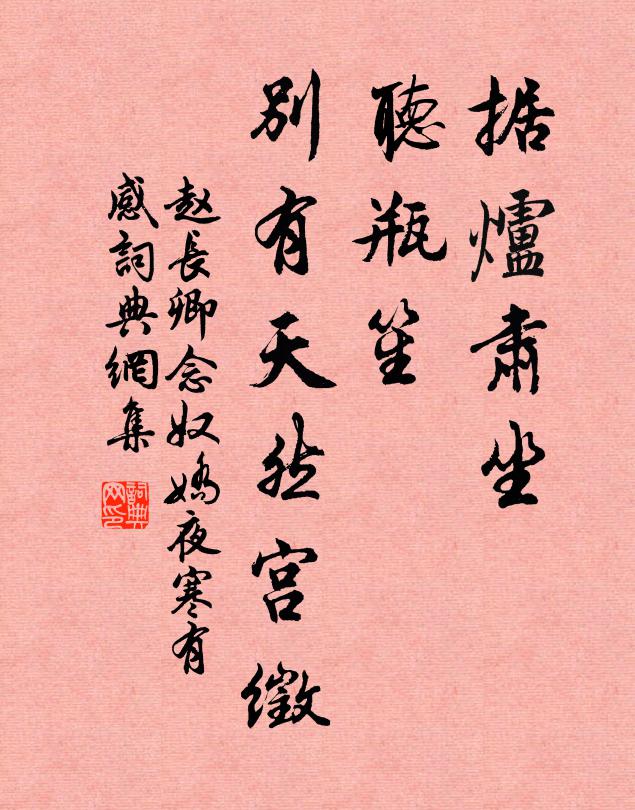 据爐肅坐
聽瓶笙
別有天然宮徵
赵長卿念奴嬌夜寒有
感詞典網集
詞典
网印